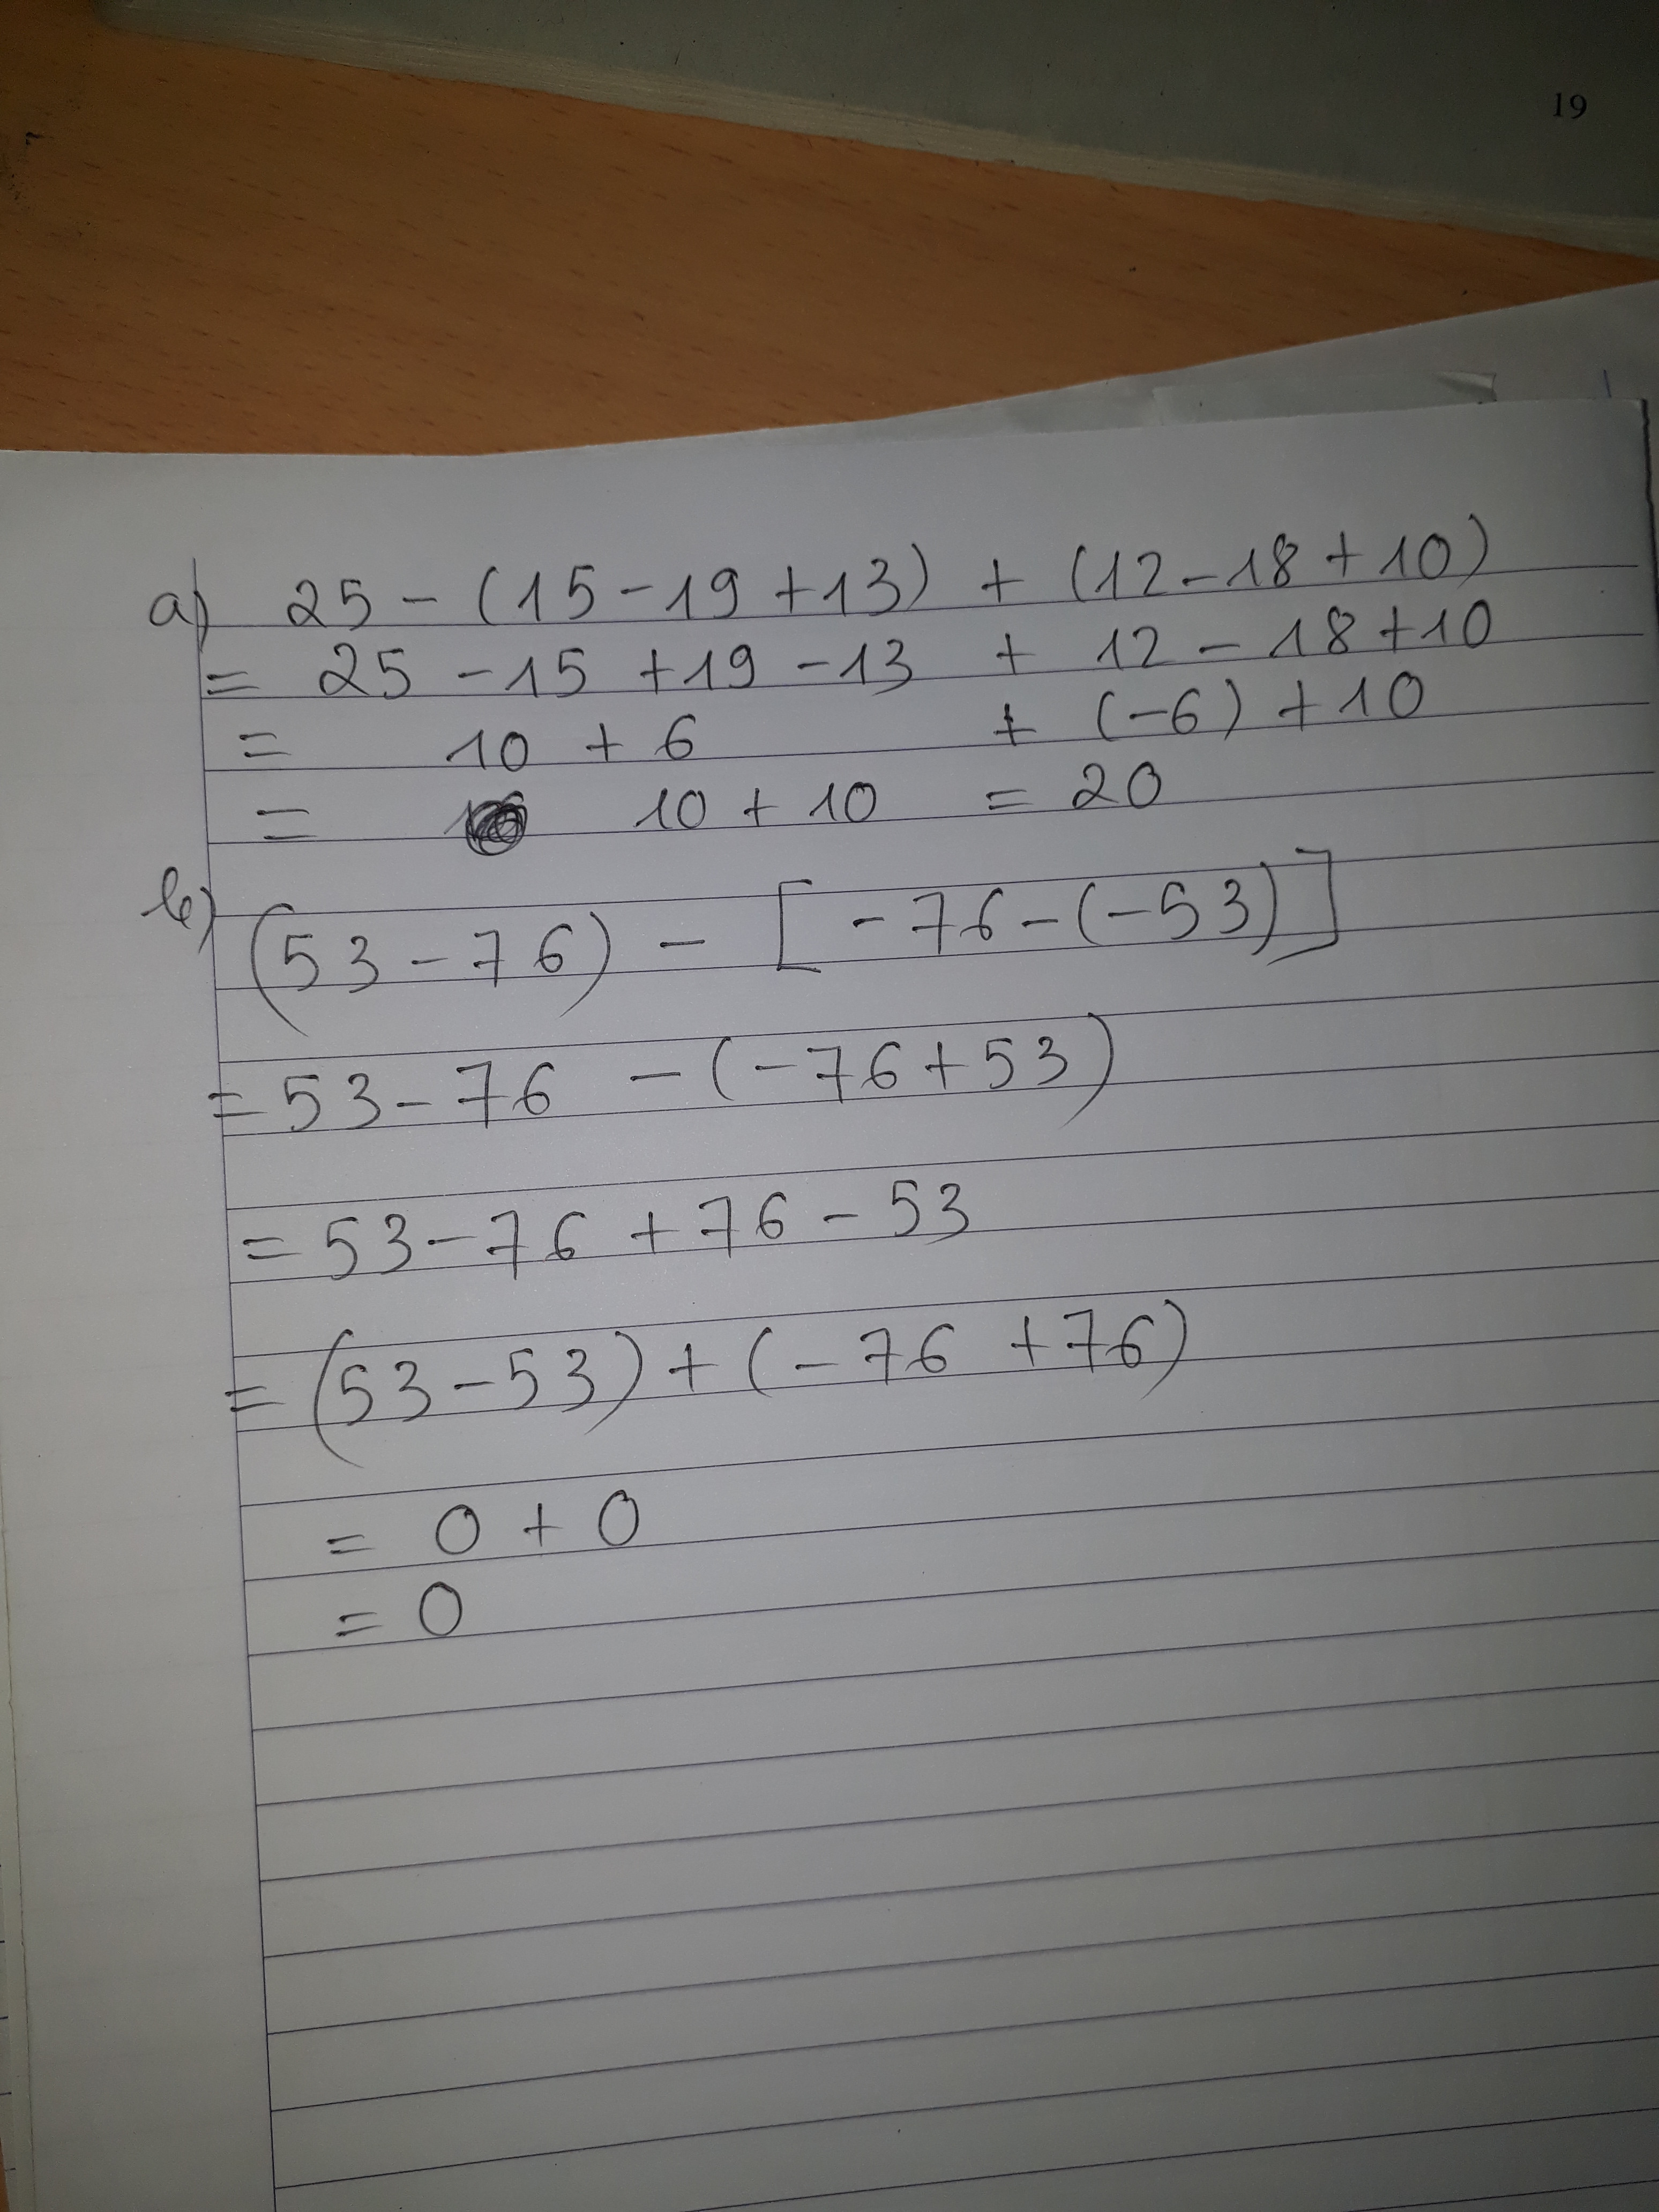 19
a) 25 - (15 - 19 + 13) + (12 - 18 + 10)
= 25 - 15 + 19 - 13 + 12 - 18 + 10
= 10 + 6 + (-6) + 10
= 10 + 10 = 20
b) (53 - 76) - [-76 - (-53)]
= 53 - 76 - (-76 + 53)
= 53 - 76 + 76 - 53
= (53 - 53) + (-76 + 76)
= 0 + 0
= 0